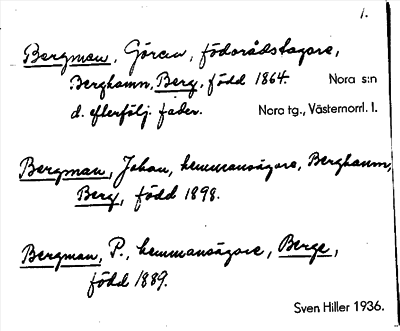 1.
Bergman, Göran, födorådstagare,
Berghamn, Berg, född 1864. Nora s:n
d. efterfölj. fader. Nora tg., Västernorrl. l.
Bergman, Johan, hemmansägare, Berghamn,
Berg, född 1898.
Bergman, P., hemmansägare, Berge,
född 1889.
Sven Hiller 1936.